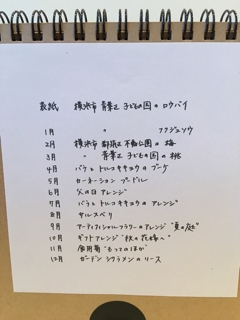 表紙 横浜市 青葉区 子どもの国のロウバイ
1月 〃 フクジュソウ
2月 横浜市 都筑区 不動公園の梅
3月 〃 青葉区 子どもの国の桃
4月 バラとトルコキキョウのブーケ
5月 カーネーション プードル
6月 父の日アレンジ
7月 バラとトルコキキョウのアレンジ
8月 サルスベリ
9月 アーティフィシャルフラワーのアレンジ "夏の庭"
10月 ギフトアレンジ "秋の花嫁へ"
11月 食用菊 もってのほか
12月 ガーデンシクラメンのリース